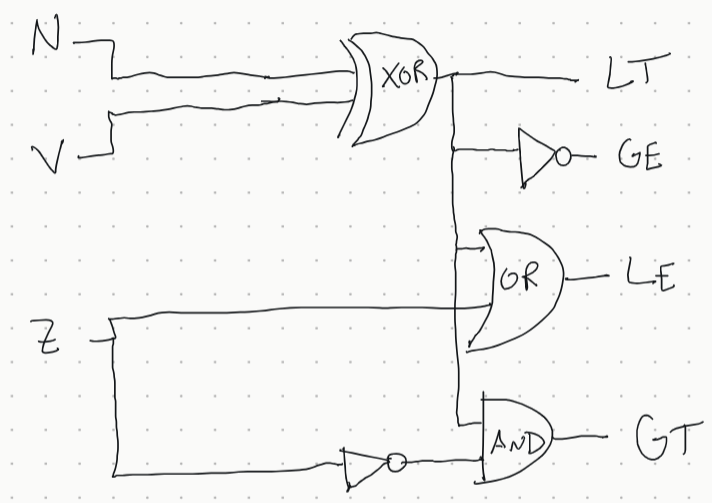 N
XOR
LT
V
GE
OR
LE
Z
AND
GT